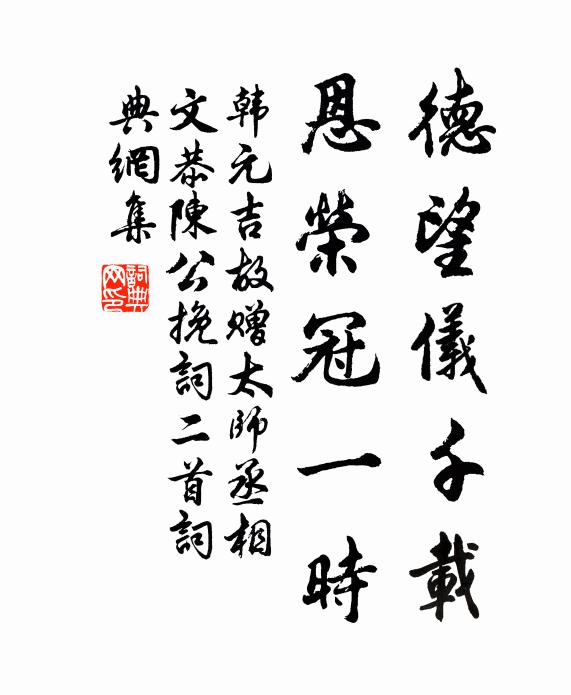 德望儀千載
恩榮冠一時
韩元吉故赠太師丞相
文恭陳公挽詞二首詞
典網集
詞典网印